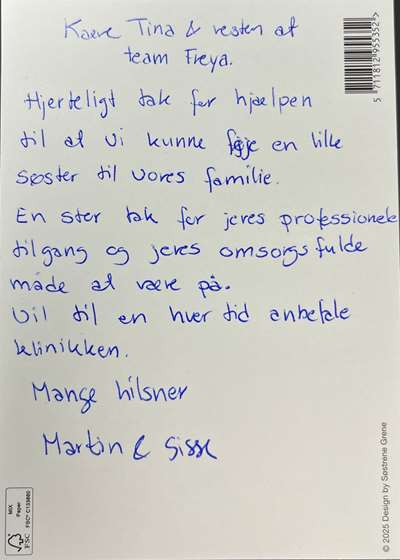 Kære Tina & resten af
team Freya.
Hjerteligt tak for hjælpen
til at vi kunne føje en lille
søster til vores familie.
En stor tak for jeres professionele
tilgang og jeres omsorgsfulde
måde at være på.
Vil til en hver tid anbefale
klinikken.
Mange hilsner
Martin & Sisse
5 711812 955352 >
© 2025 Design by Søstrene Grene
MIX
Paper
FSC
FSC® C133660